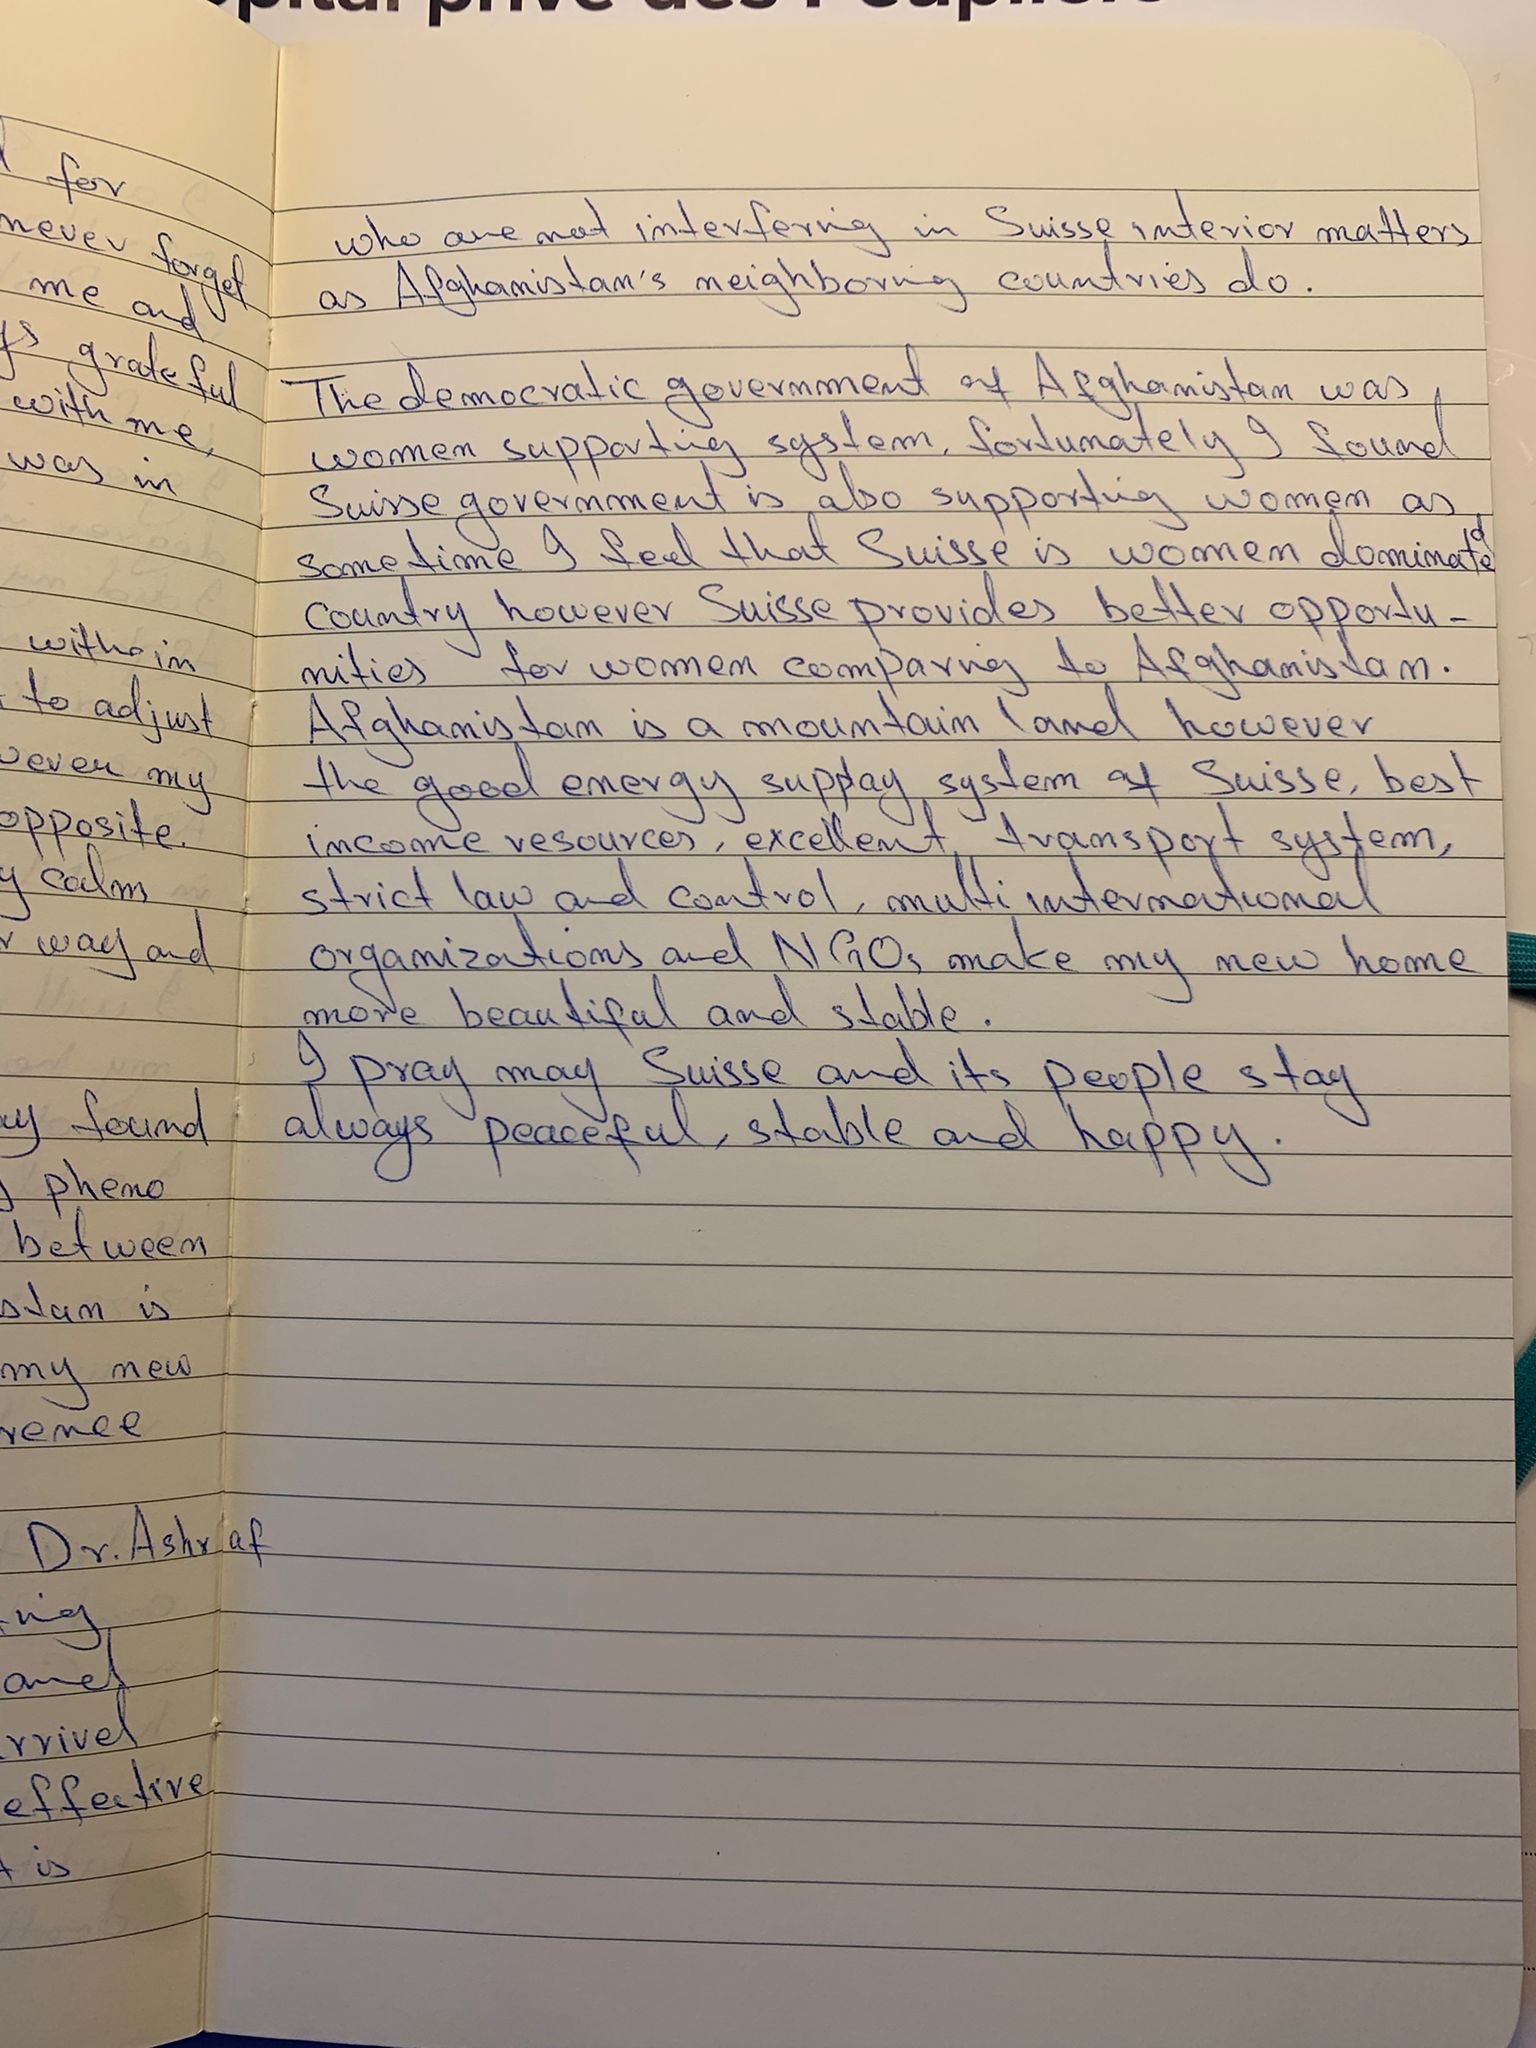 opital privé des Peupliers
for
never forget
me and
ys grateful
with me,
was in
withe in
to adjust
wever my
opposite.
y calm
r way and
ay found
pheno
between
stan is
my new
rence
Dr. Ashraf
ring
and
rrived
effective
t is
who are not interfering in Suisse interior matters
as Afghanistan's neighboring countries do.
The democratic government of Afghanistan was
women supporting system, fortunately I found
Suisse government is also supporting women as
sometime I feel that Suisse is women dominated
country however Suisse provides better opportu-
nities for women comparing to Afghanistan.
Afghanistan is a mountain land however
the good energy supplay system of Suisse, best
income resources, excellent transport system,
strict law and control, multi international
organizations and NGOs make my new home
more beautiful and stable.
I pray may Suisse and its people stay
always peaceful, stable and happy.